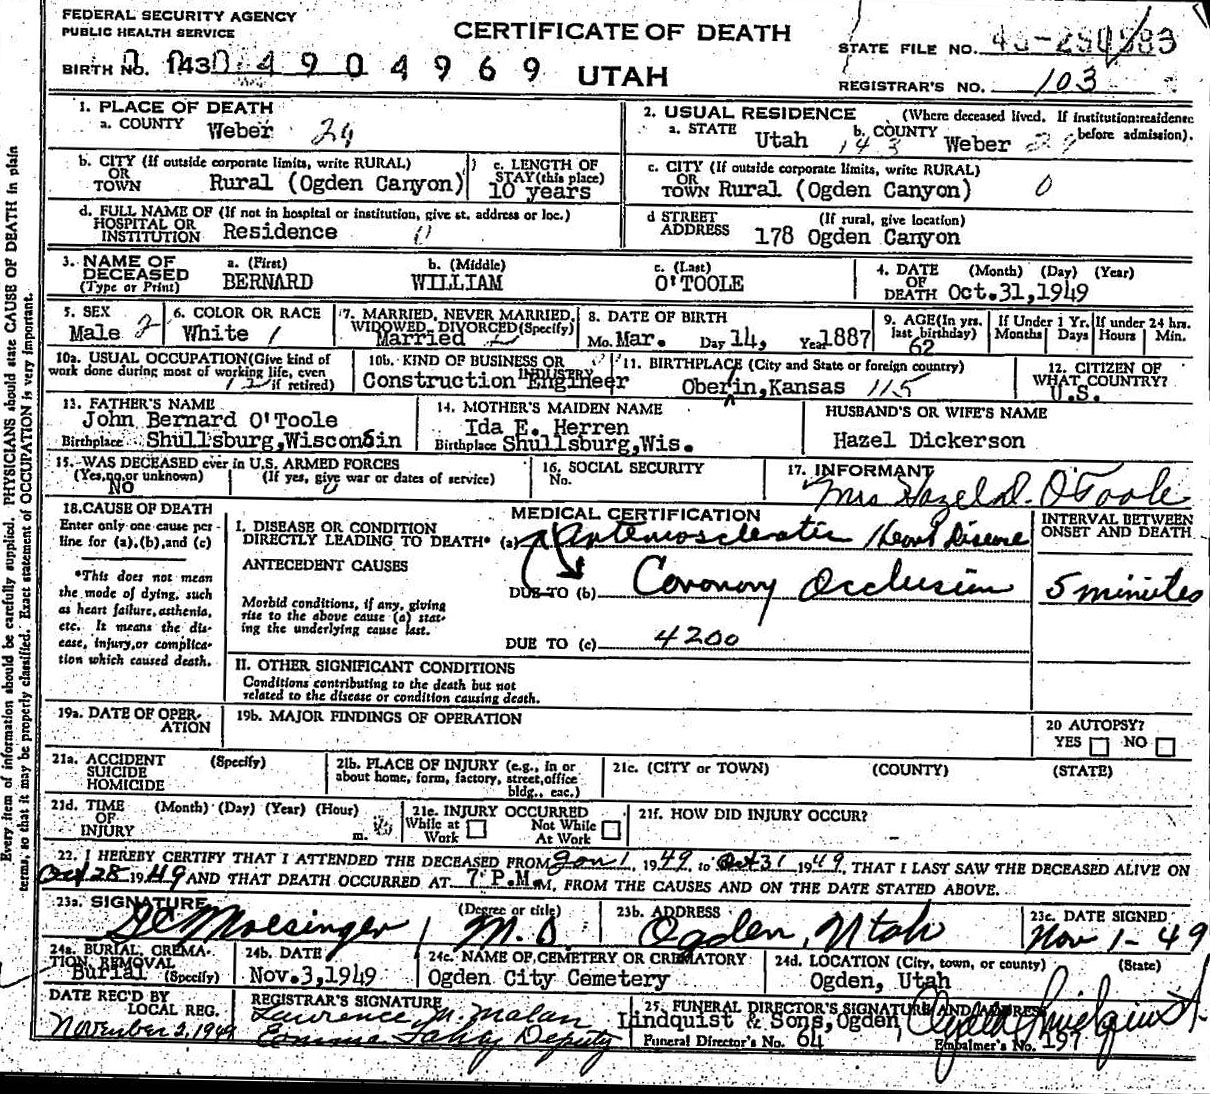 FEDERAL SECURITY AGENCY
PUBLIC HEALTH SERVICE
CERTIFICATE OF DEATH
STATE FILE NO.
BIRTH NO. 1430 4 9 0 4 9 6 9 UTAH
REGISTRAR'S NO. 103
1. PLACE OF DEATH
a. COUNTY Weber 29
2. USUAL RESIDENCE (Where deceased lived. If institution: residence before admission).
a. STATE Utah 143 b. COUNTY Weber 29
b. CITY (If outside corporate limits, write RURAL)
OR
TOWN Rural (Ogden Canyon)
c. LENGTH OF
STAY (this place)
10 years
c. CITY (If outside corporate limits, write RURAL)
OR
TOWN Rural (Ogden Canyon) 0
d. FULL NAME OF (If not in hospital or institution, give st. address or loc.)
HOSPITAL OR
INSTITUTION Residence 0
d STREET (If rural, give location)
ADDRESS 178 Ogden Canyon
3. NAME OF
DECEASED
(Type or Print)
a. (First) BERNARD
b. (Middle) WILLIAM
c. (Last) O'TOOLE
4. DATE (Month) (Day) (Year)
OF
DEATH Oct.31,1949
5. SEX
Male 2
6. COLOR OR RACE
White 1
7. MARRIED, NEVER MARRIED,
WIDOWED, DIVORCED (Specify)
Married 2
8. DATE OF BIRTH
Mo. Mar. Day 14, Year 1887
9. AGE (In yrs.
last birthday)
62
If Under 1 Yr.
Months Days
If under 24 hrs.
Hours Min.
10a. USUAL OCCUPATION (Give kind of
work done during most of working life, even
if retired)
10b. KIND OF BUSINESS OR
INDUSTRY
Construction Engineer
11. BIRTHPLACE (City and State or foreign country)
Oberlin, Kansas 115
12. CITIZEN OF
WHAT COUNTRY?
U.S.
13. FATHER'S NAME
John Bernard O'Toole
Birthplace Shullsburg, Wisconsin
14. MOTHER'S MAIDEN NAME
Ida E. Herren
Birthplace Shullsburg, Wis.
HUSBAND'S OR WIFE'S NAME
Hazel Dickerson
15. WAS DECEASED ever in U.S. ARMED FORCES
(Yes, no, or unknown) (If yes, give war or dates of service)
No 0
16. SOCIAL SECURITY
No.
17. INFORMANT
Mrs Hazel D. O'Toole
18. CAUSE OF DEATH
Enter only one cause per
line for (a), (b), and (c)
*This does not mean
the mode of dying, such
as heart failure, asthenia,
etc. It means the dis-
ease, injury, or complica-
tion which caused death.
MEDICAL CERTIFICATION
INTERVAL BETWEEN
ONSET AND DEATH
I. DISEASE OR CONDITION
DIRECTLY LEADING TO DEATH* (a) Arteriosclerotic Heart Disease
ANTECEDENT CAUSES
DUE TO (b) Coronary Occlusion 5 minutes
Morbid conditions, if any, giving
rise to the above cause (a) stat-
ing the underlying cause last.
DUE TO (c) 4200
II. OTHER SIGNIFICANT CONDITIONS
Conditions contributing to the death but not
related to the disease or condition causing death.
19a. DATE OF OPER-
ATION
19b. MAJOR FINDINGS OF OPERATION
20 AUTOPSY?
YES NO
21a. ACCIDENT (Specify)
SUICIDE
HOMICIDE
21b. PLACE OF INJURY (e.g., in or
about home, form, factory, street, office
bldg., eac.)
21c. (CITY or TOWN) (COUNTY) (STATE)
21d. TIME (Month) (Day) (Year) (Hour)
OF
INJURY m.
21e. INJURY OCCURRED
While at Work Not While At Work
21f. HOW DID INJURY OCCUR?
22. I HEREBY CERTIFY THAT I ATTENDED THE DECEASED FROM Jan 1, 1949, to Oct 31 1949, THAT I LAST SAW THE DECEASED ALIVE ON
Oct 28 1949 AND THAT DEATH OCCURRED AT 7 P.M.M, FROM THE CAUSES AND ON THE DATE STATED ABOVE.
23a. SIGNATURE (Degree or title) M.D.
23b. ADDRESS Ogden, Utah
23c. DATE SIGNED
Nov 1-49
24a. BURIAL, CREMA-
TION, REMOVAL
Burial (Specify)
24b. DATE
Nov.3,1949
24c. NAME OF CEMETERY OR CREMATORY
Ogden City Cemetery
24d. LOCATION (City, town, or county) (State)
Ogden, Utah
DATE REC'D BY
LOCAL REG.
November 2, 1949
REGISTRAR'S SIGNATURE
Lawrence M. Malan
Deputy
25. FUNERAL DIRECTOR'S SIGNATURE AND ADDRESS
Lindquist & Sons, Ogden
Funeral Director's No. 64 Embalmer's No. 197
Every item of information should be carefully supplied. PHYSICIANS should state CAUSE OF DEATH in plain
terms, so that it may be properly classified. Exact statement of OCCUPATION is very important.